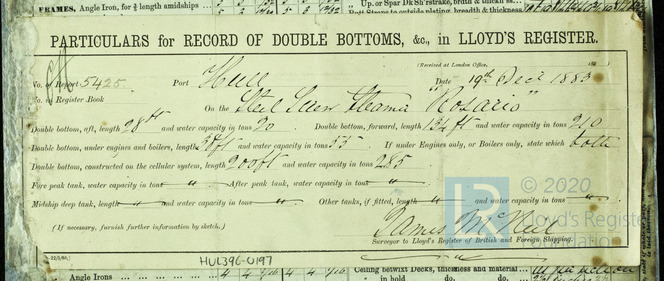 FRAMES, Angle Iron, for ¾ length amidships
Up. or Spar Dk Sh'rstrake, br'dth & thickn'ss
Butt Straps to outside plating, breadth & thickness
PARTICULARS for RECORD OF DOUBLE BOTTOMS, &c., in LLOYD'S REGISTER.
(Received at London Office, 188 )
No. of Report 5425. Port Hull Date 19th Dec 1883
No. in Register Book On the Steel Screw Steamer "Rosario"
Double bottom, aft, length 28 ft and water capacity in tons 20. Double bottom, forward, length 134 ft and water capacity in tons 210
Double bottom, under engines and boilers, length 38 ft and water capacity in tons 55. If under Engines only, or Boilers only, state which both
Double bottom, constructed on the cellular system, length 200 ft and water capacity in tons 285
Fore peak tank, water capacity in tons " After peak tank, water capacity in tons "
Midship deep tank, length " and water capacity in tons " Other tanks, if fitted, length " and water capacity in tons "
(If necessary, furnish further information by sketch.)
James McNeil
Surveyor to Lloyd's Register of British and Foreign Shipping.
LR © 2020
Lloyd's Register
Foundation
HUL396-0197
Angle Irons
Ceiling betwixt Decks, thickness and material
" in hold do. do.